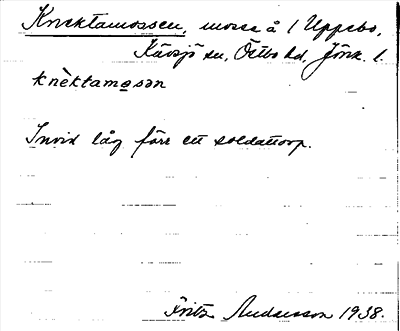 Knektamossen, mosse å 1 Uppebo,
Kävsjö sn, Östbo hd, Jönk. l.
knèktamosən
Invid låg förr ett soldattorp.
Fritz Andersson 1938.